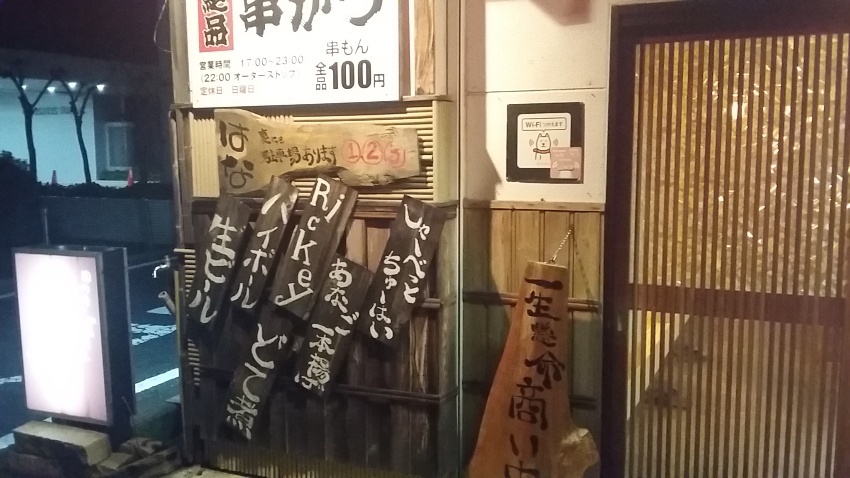 絶品
串かつ
営業時間 17:00〜23:00
(22:00 オーダーストップ)
定休日 日曜日
串もん
全品100円
はな
駐車場あります ①②⑤
Wi-Fi つかえます
生ビール
ハイボール
Rickey
どて焼
あなご一本揚げ
しゃーべっとちゅーはい
一生懸命商い中